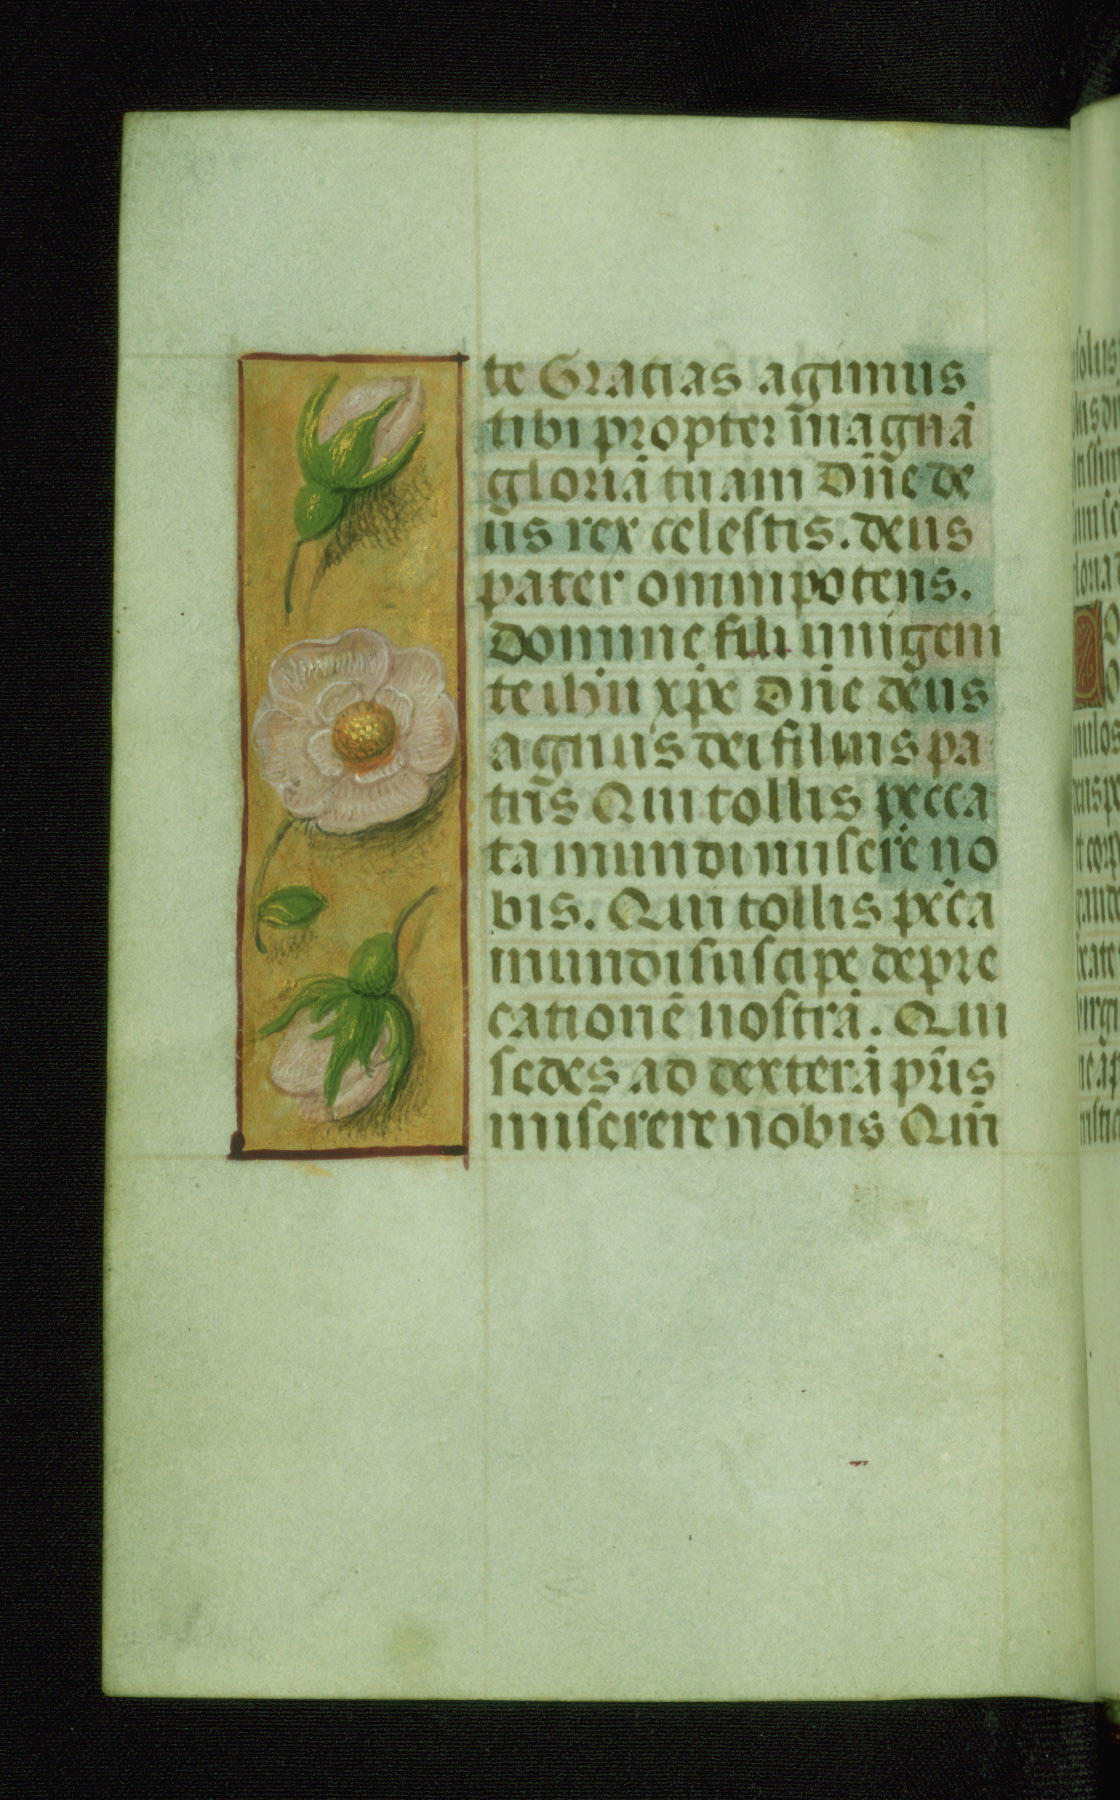 te Gracias agimus
tibi propter magnā
gloriā tuam Dn̄e de
us rex celestis. deus
pater omnipotens.
Domine fili unigeni
te ihū xp̄e Dn̄e deus
agnus dei filius pa
tris Qui tollis pecca
ta mundi misere no
bis. Qui tollis pc̄ca
mundi suscipe depre
cationē nostrā. Qui
sedes ad dexterā pr̄is
miserere nobis Qm̄